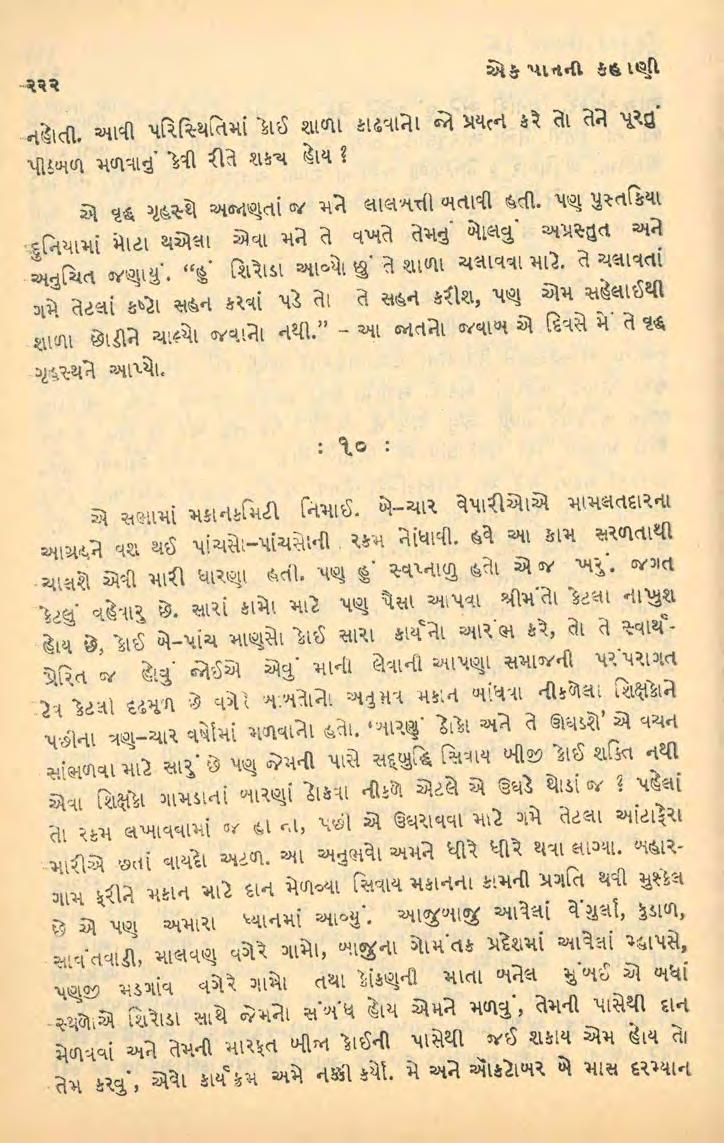 એક પાનની કહાણી
૨૨૨
નહોતી. આવી પરિસ્થિતિમાં કોઈ શાળા કાઢવાનો જો પ્રયત્ન કરે તો તેને પૂરતું
પીઠબળ મળવાનું કેવી રીતે શકય હોય ?
એ વૃદ્ધ ગૃહસ્થે અજાણતાં જ મને લાલબત્તી બતાવી હતી. પણ પુસ્તકિયા
દુનિયામાં મોટા થએલા એવા મને તે વખતે તેમનું બોલવું અપ્રસ્તુત અને
અનુચિત જણાયું. “હું શિરોડા આવ્યો છું તે શાળા ચલાવવા માટે. તે ચલાવતાં
ગમે તેટલાં કષ્ટો સહન કરવાં પડે તો તે સહન કરીશ, પણ એમ સહેલાઈથી
શાળા છોડીને ચાલ્યો જવાનો નથી.” – આ જાતનો જવાબ એ દિવસે મેં તે વૃદ્ધ
ગૃહસ્થને આપ્યો.
: ૧૦ :
એ સભામાં મકાનકમિટી નિમાઈ. બે–ચાર વેપારીઓએ મામલતદારના
આગ્રહને વશ થઈ પાંચસો–પાંચસોની રકમ નોંધાવી. હવે આ કામ સરળતાથી
ચાલશે એવી મારી ધારણા હતી. પણ હું સ્વપ્નાળુ હતો એ જ ખરું. જગત
કેટલું વહેવારુ છે. સારાં કામો માટે પણ પૈસા આપવા શ્રીમંતો કેટલા નાખુશ
હોય છે, કોઈ બે–પાંચ માણસો કોઈ સારા કાર્યનો આરંભ કરે, તો તે સ્વાર્થ–
પ્રેરિત જ હોવું જોઈએ એવું માની લેવાની આપણા સમાજની પરંપરાગત
ટેવ કેટલી દઢમૂળ છે વગેરે બાબતોનો અનુભવ મકાન બાંધવા નીકળેલા શિક્ષકોને
પછીના ત્રણ–ચાર વર્ષોમાં મળવાનો હતો. ‘બારણું ઠોકો અને તે ઊઘડશે’ એ વચન
સાંભળવા માટે સારું છે પણ જેમની પાસે સદ્દબુદ્ધિ સિવાય બીજી કોઈ શક્તિ નથી
એવા શિક્ષકો ગામડાનાં બારણાં ઠોકવા નીકળે એટલે એ ઉઘડે થોડાં જ ? પહેલાં
તો રકમ લખાવવામાં જ હા ના, પછી એ ઉઘરાવવા માટે ગમે તેટલા આંટાફેરા
મારીએ છતાં વાયદો અટળ. આ અનુભવો અમને ધીરે ધીરે થવા લાગ્યા. બહાર–
ગામ ફરીને મકાન માટે દાન મેળવ્યા સિવાય મકાનના કામની પ્રગતિ થવી મુશ્કેલ
છે એ પણ અમારા ધ્યાનમાં આવ્યું. આજુબાજુ આવેલાં વેંગુર્લા, કુડાળ,
સાવંતવાડી, માલવણ વગેરે ગામો, બાજુના ગોમંતક પ્રદેશમાં આવેલાં મ્હાપસે,
પણજી મડગાંવ વગેરે ગામો તથા કોંકણની માતા બનેલ મુંબઈ એ બધાં
સ્થળોએ શિરોડા સાથે જેમનો સંબંધ હોય એમને મળવું, તેમની પાસેથી દાન
મેળવવાં અને તેમની મારફત બીજા કોઈની પાસેથી જઈ શકાય એમ હોય તો
તેમ કરવું, એવો કાર્યક્રમ અમે નક્કી કર્યો. મે અને ઑકટોબર બે માસ દરમ્યાન